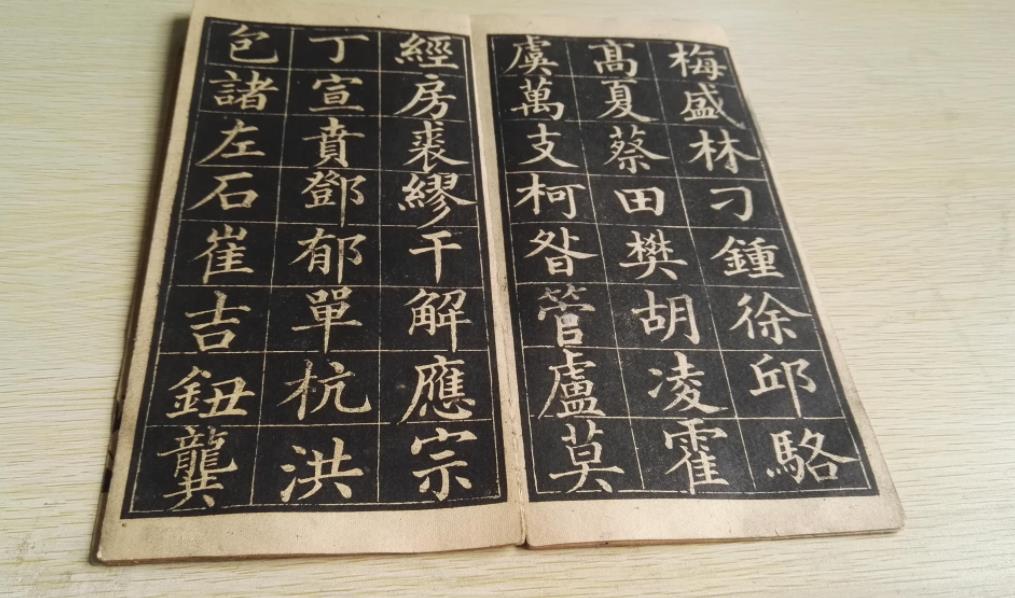 梅盛林刁鍾徐邱駱
髙夏蔡田樊胡凌霍
虞萬支柯昝管盧莫
經房裘繆干解應宗
丁宣賁鄧郁單杭洪
包諸左石崔吉鈕龔